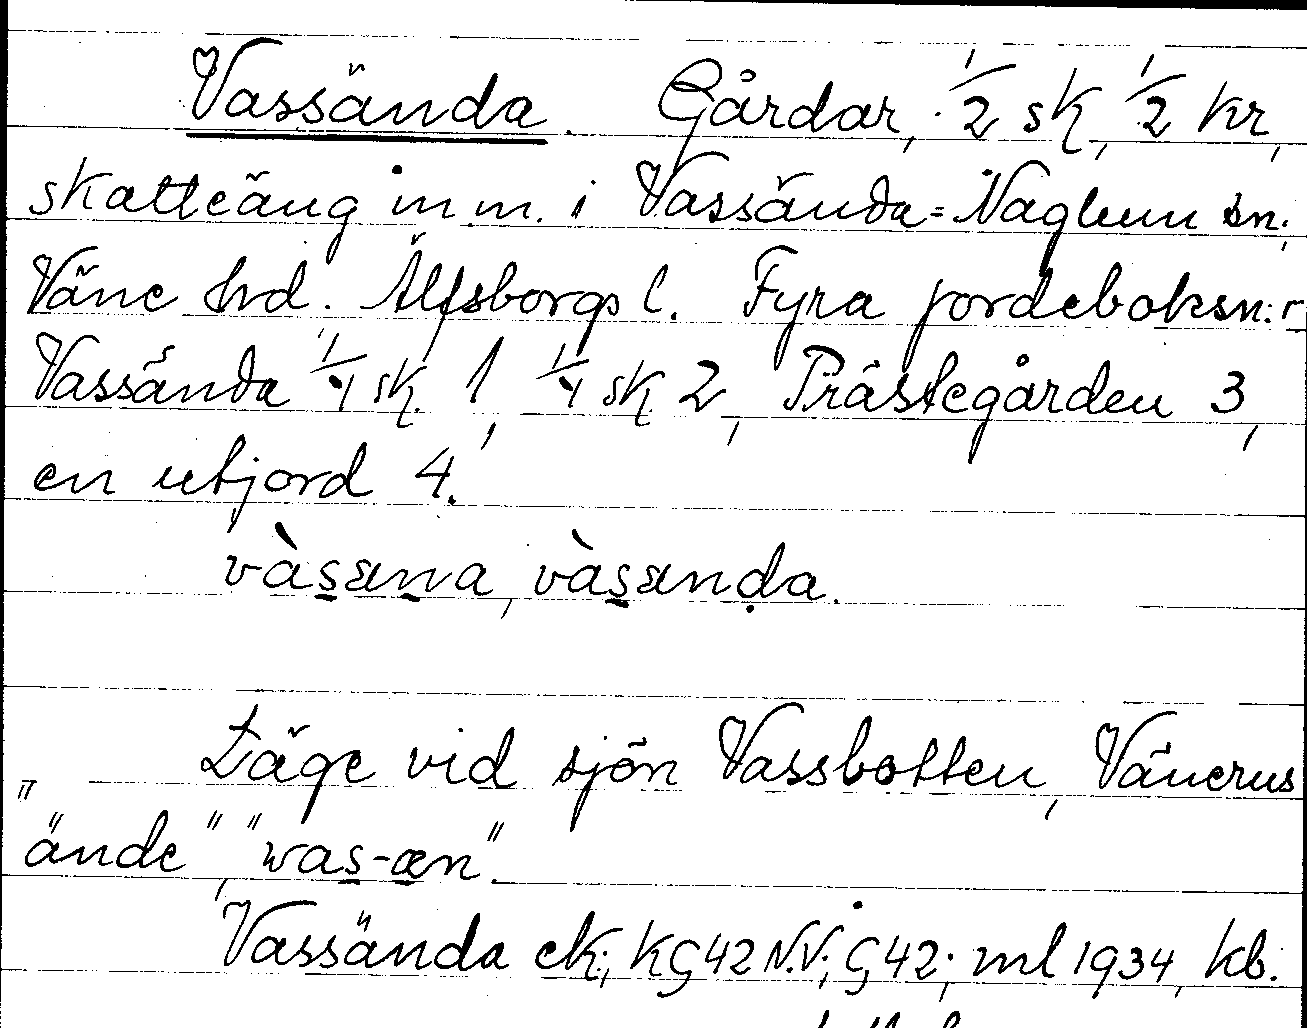 Vassända. Gårdar, 1/2 sk, 1/2 kr,
skatteäng m m. i Vassända-Naglum sn;
Väne hrd. Älfsborgs l. Fyra jordeboksn:r
Vassända 1/4 sk. 1, 1/4 sk 2, Prästegården 3,
en utjord 4.
vàsana, vàsanda.
Läge vid sjön Vassbotten, Vänerns
"ände", "was-æn".
Vassända ek; KG 42 N.V; G 42; ml 1934, kb.